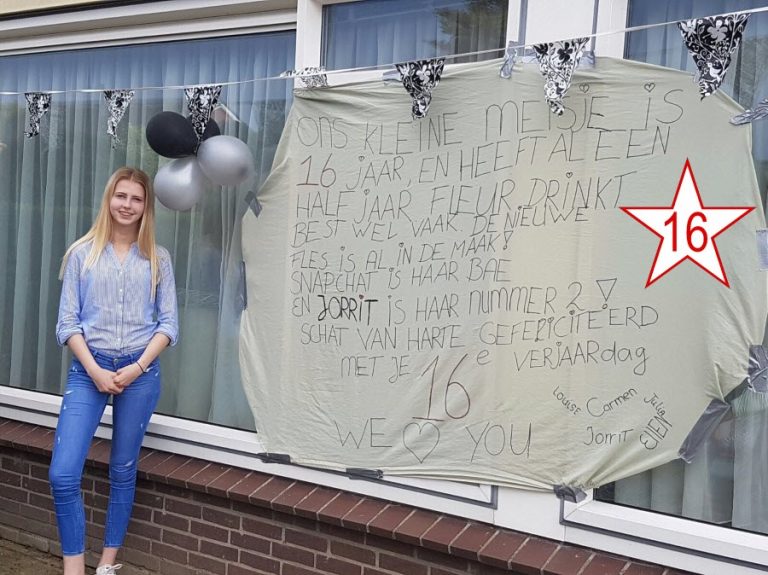 ONS KLEINE MEISJE IS
16 JAAR, EN HEEFT AL EEN
HALF JAAR FLEUR DRINKT
BEST WEL VAAK. DE NIEUWE
FLES IS AL IN DE MAAK!
SNAPCHAT IS HAAR BAE
EN JORRIT IS HAAR NUMMER 2!
SCHAT VAN HARTE GEFELICITEERD
MET JE 16e VERJAARDAG
WE ♡ YOU
Louise Carmen Julia
Jorrit Ellen
16